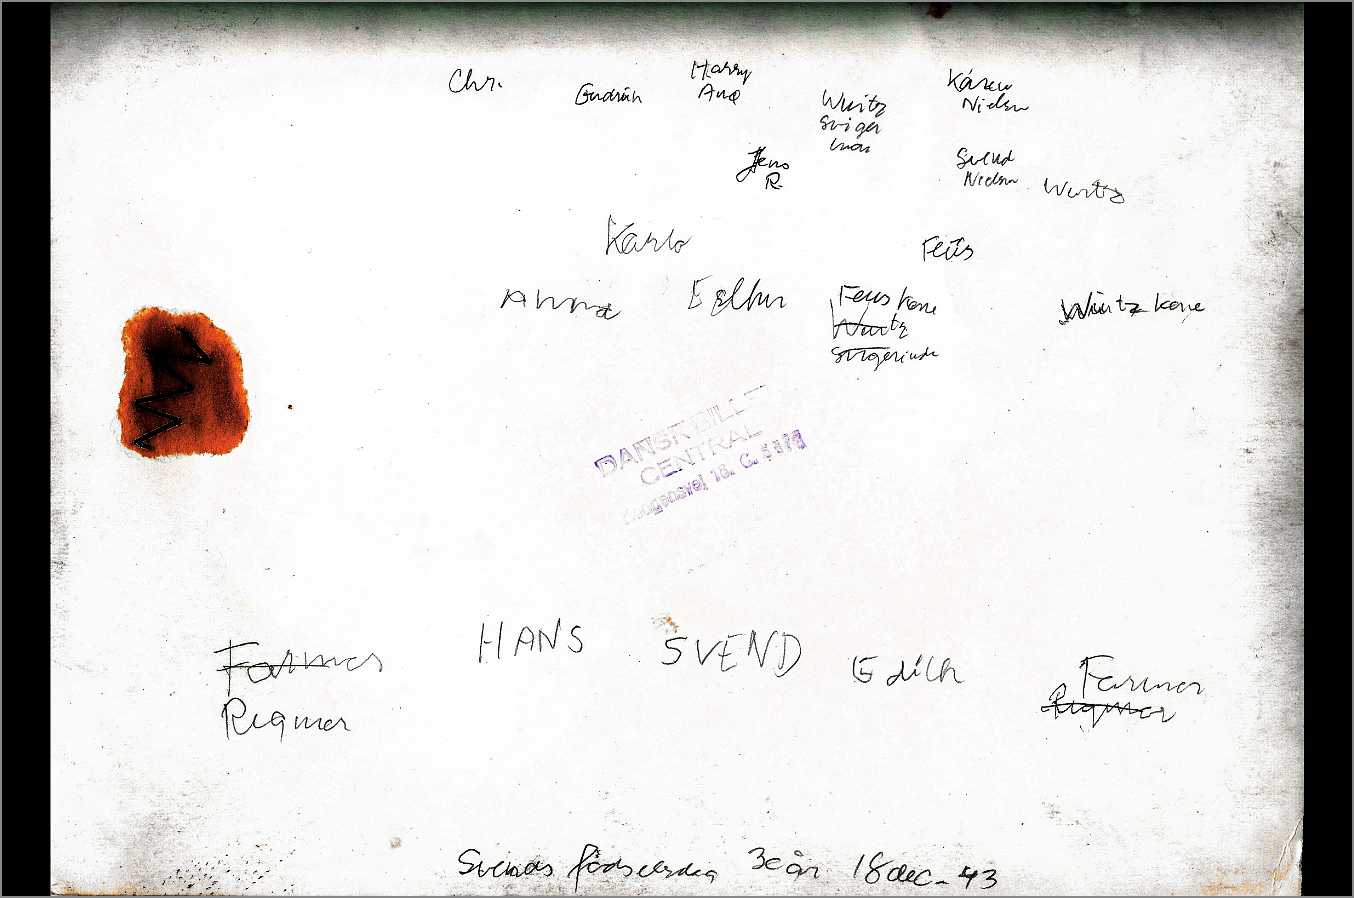 Chr.
Gudrun
Harry
Ang
Wuitz
Sviger
mor
Karen
Nielsen
Jens
R.
Svend
Nielsen
Wurtz
Karlo
Feus
Anna
Esther
Feus kone
Wurtz
Svigerinde
Wurtz kone
DANSK BILLE
CENTRAL
Farmor
Rigmor
HANS
SVEND
Edith
Farmor
Rigmor
Svends fødselsdag 3 år 18 dec - 43